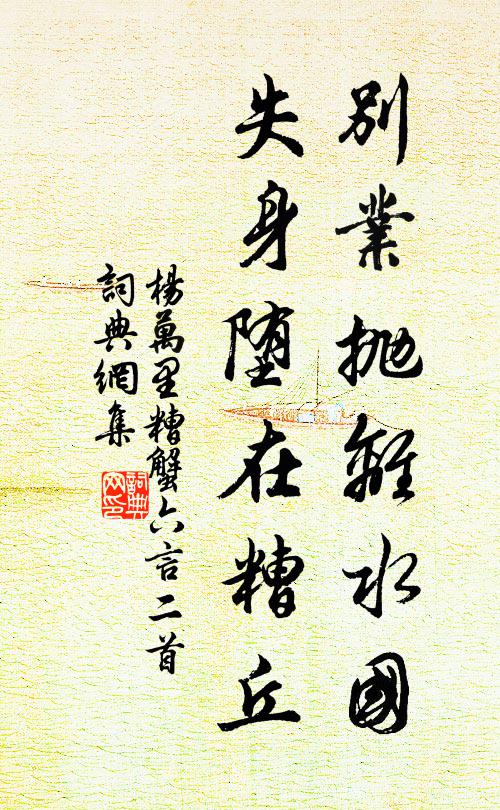 別業拋離水國
失身墮在糟丘
楊萬里糟蟹六言二首
詞典網集
詞典
网印